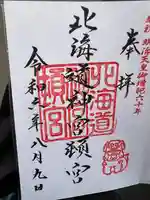 奉拝
北海道神宮頓宮
北海道
頓宮
令和二年八月九日